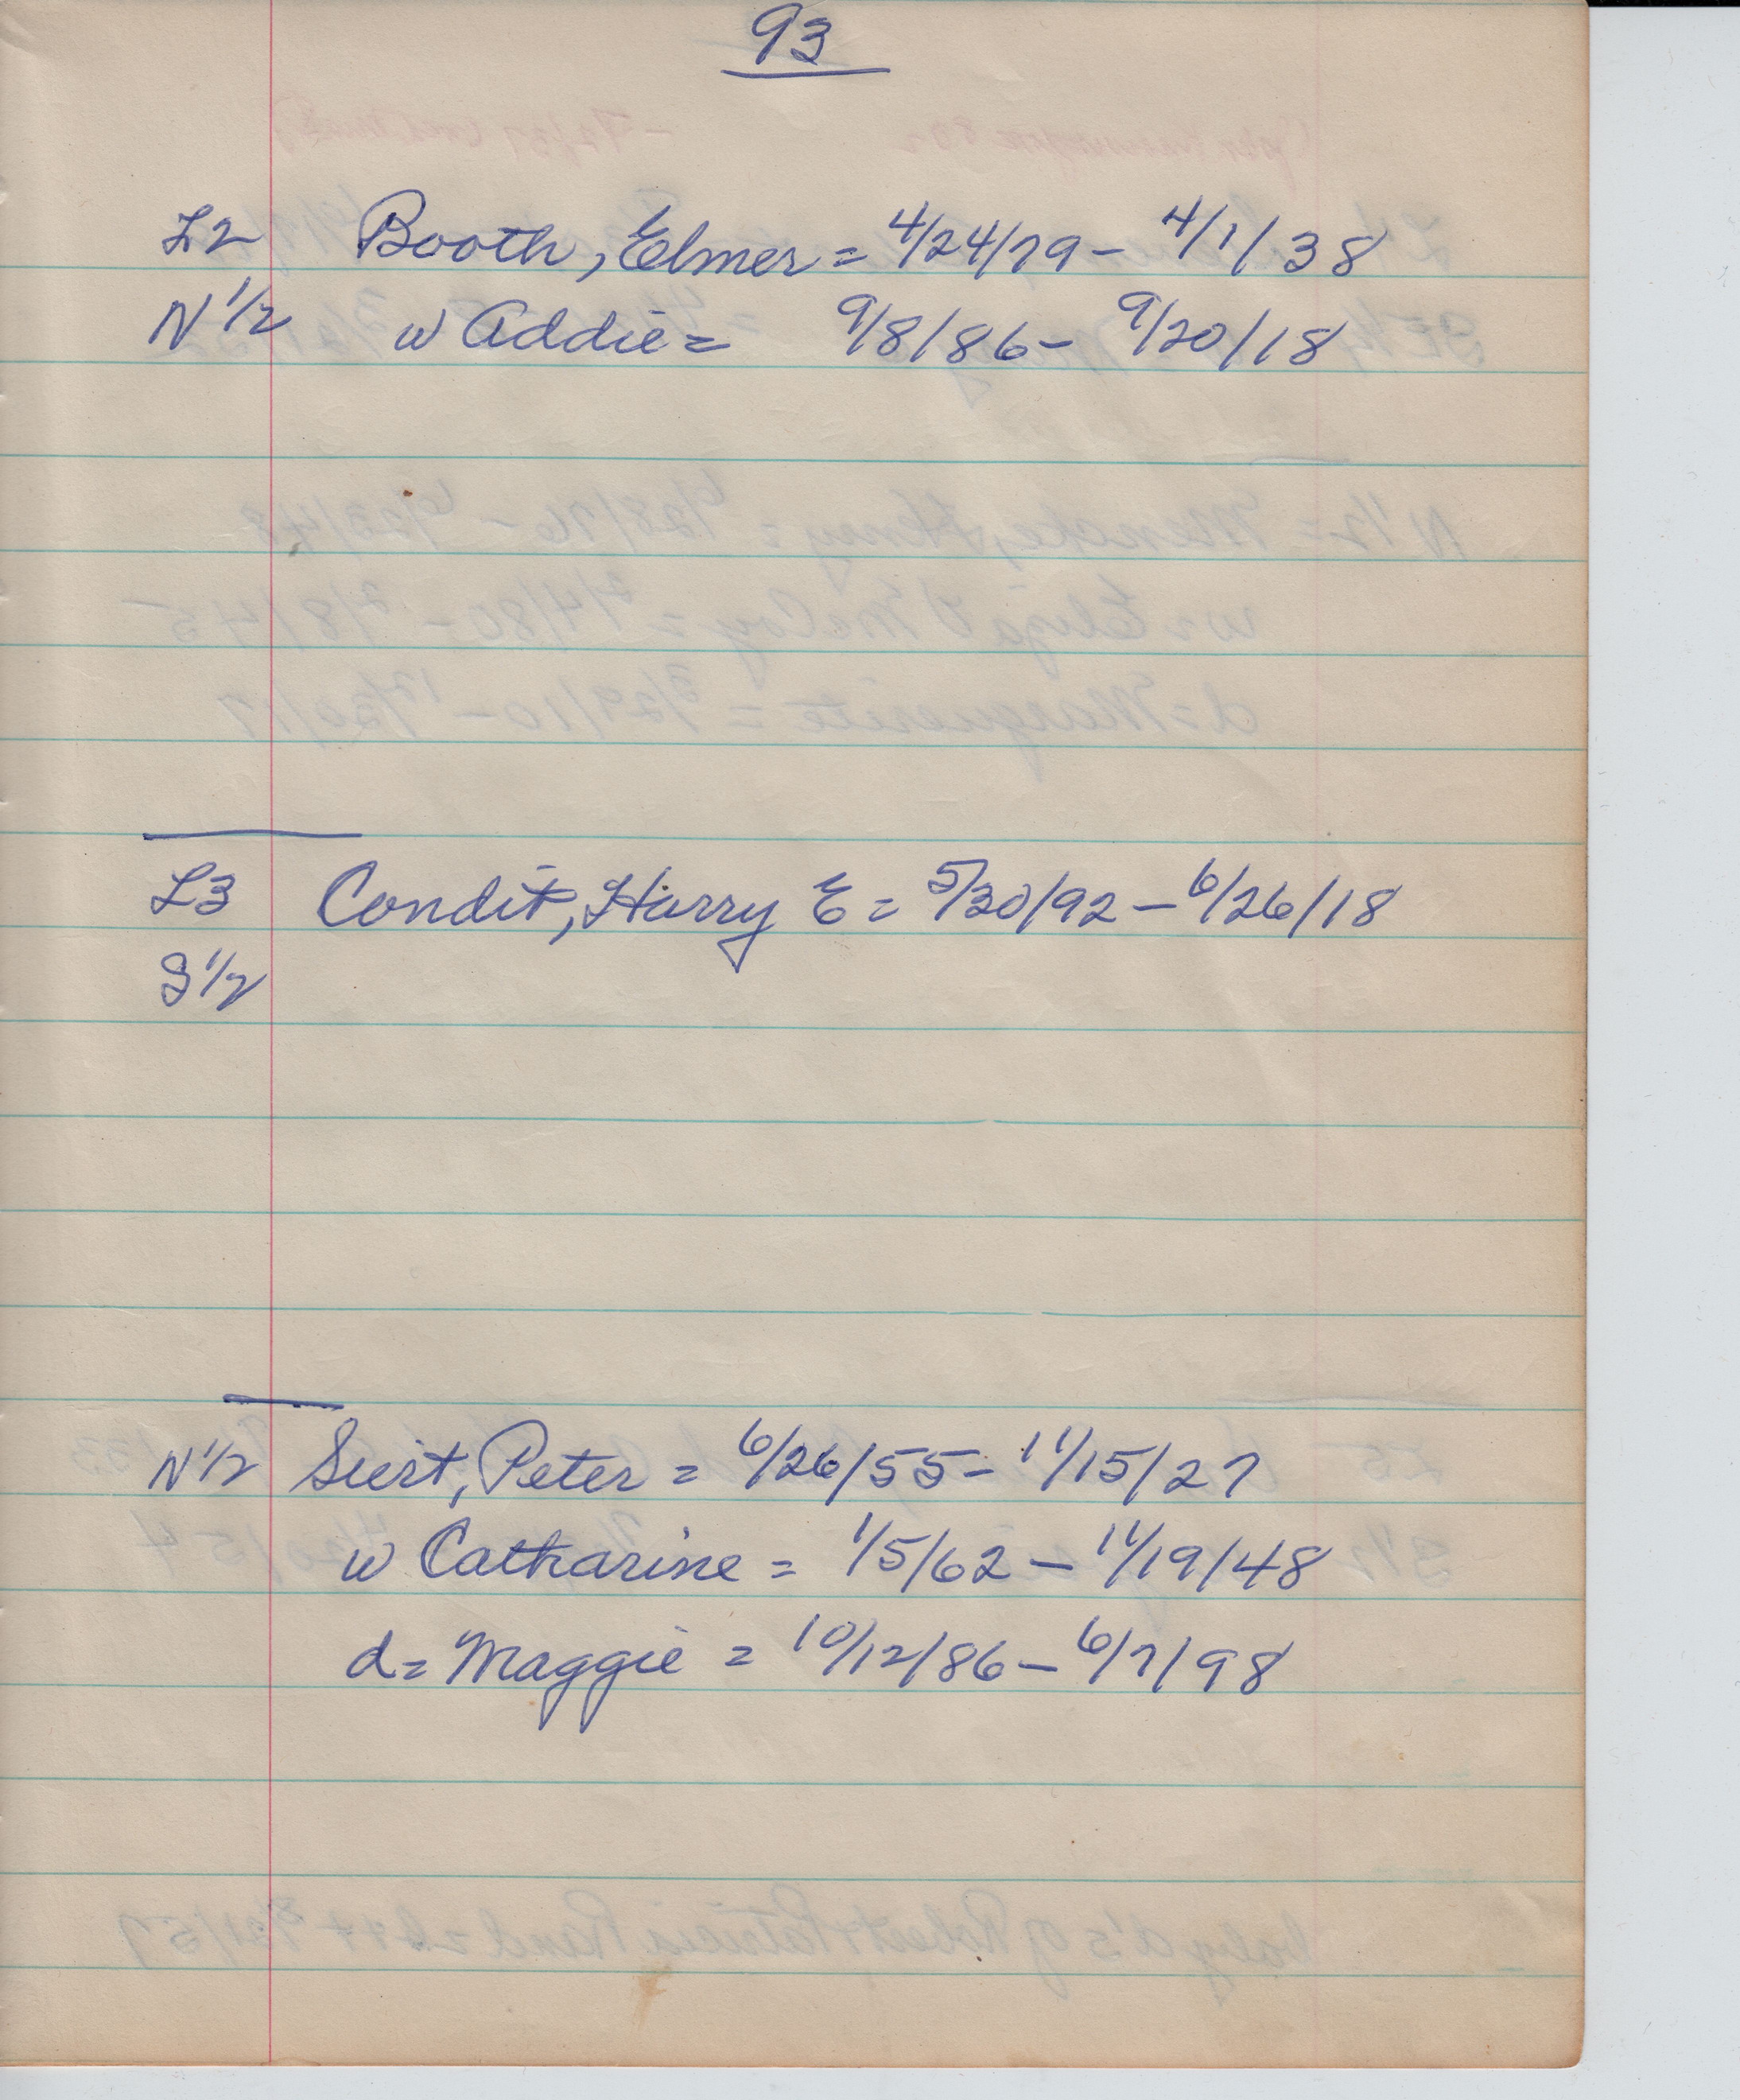 93
L2 Booth, Elmer = 4/24/79 - 4/1/38
N 1/2 w Addie = 9/8/86 - 9/20/18
L3 Condit, Harry E = 5/30/92 - 6/26/18
S 1/2
N 1/2 Suirt, Peter = 6/26/55 - 11/15/27
w Catharine = 1/5/62 - 11/19/48
d = Maggie = 10/12/86 - 6/7/98